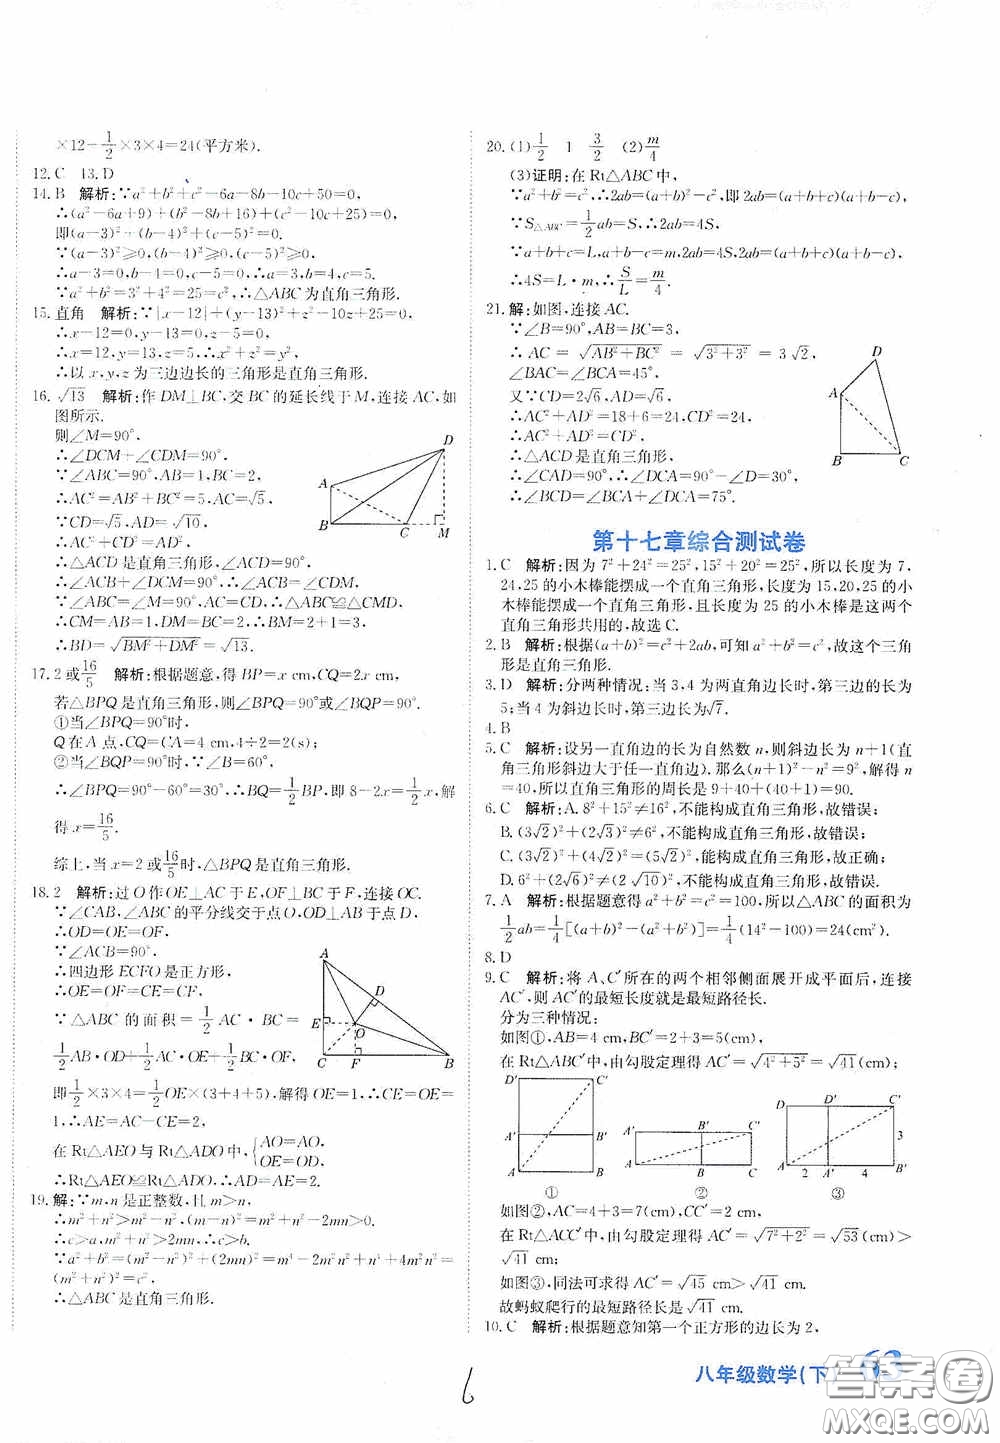 ×12－1/2×3×4＝24(平方米).
12. C　13. D
14. B　解析:∵a²＋b²＋c²－6a－8b－10c＋50＝0,
∴(a²－6a＋9)＋(b²－8b＋16)＋(c²－10c＋25)＝0,
即(a－3)²＋(b－4)²＋(c－5)²＝0.
∵(a－3)²≥0,(b－4)²≥0,(c－5)²≥0,
∴a－3＝0,b－4＝0,c－5＝0,∴a＝3,b＝4,c＝5.
∵a²＋b²＝3²＋4²＝25＝c²,∴△ABC为直角三角形.
15. 直角　解析:∵|x－12|＋(y－13)²＋z²－10z＋25＝0,
∴x－12＝0,y－13＝0,z－5＝0,
∴x＝12,y＝13,z＝5,∴x²＋z²＝y²,
∴以x,y,z为三边边长的三角形是直角三角形.
16. √13　解析:作DM⊥BC,交BC的延长线于M,连接AC,如
图所示.
则∠M＝90°.
∴∠DCM＋∠CDM＝90°.
∵∠ABC＝90°,AB＝1,BC＝2,
∴AC²＝AB²＋BC²＝5,AC＝√5.
∵CD＝√5,AD＝√10,
∴AC²＋CD²＝AD²,
∴△ACD是直角三角形,∠ACD＝90°,
∴∠ACB＋∠DCM＝90°,∴∠ACB＝∠CDM.
∵∠ABC＝∠M＝90°,AC＝CD,∴△ABC≌△CMD,
∴CM＝AB＝1,DM＝BC＝2,∴BM＝BC＋CM＝3,
∴BD＝√(BM²＋DM²)＝√13.
A
B
C
D
M
17. 2或16/5　解析:根据题意,得BP＝x cm,CQ＝2x cm,
若△BPQ是直角三角形,则∠BPQ＝90°或∠BQP＝90°.
①当∠BPQ＝90°时,
Q在A点,CQ＝CA＝4 cm,4÷2＝2(s);
②当∠BQP＝90°时,∵∠B＝60°,
∴∠BPQ＝90°－60°＝30°,∴BQ＝1/2BP,即8－2x＝1/2x,解
得x＝16/5.
综上,当x＝2或16/5时,△BPQ是直角三角形.
18. 2　解析:过O作OE⊥AC于E,OF⊥BC于F,连接OC.
∵∠CAB,∠ABC的平分线交于点O,OD⊥AB于点D,
∴OD＝OE＝OF,
∵∠ACB＝90°,
∴四边形ECFO是正方形,
∴OE＝OF＝CE＝CF,
∵△ABC的面积＝1/2AC·BC＝
1/2AB·OD＋1/2AC·OE＋1/2BC·OF,
即1/2×3×4＝1/2OE×(3＋4＋5),解得OE＝1,∴CE＝OE＝
1,∴AE＝AC－CE＝2.
在Rt△AEO与Rt△ADO中,{AO＝AO, OE＝OD,
∴Rt△AEO≌Rt△ADO,∴AD＝AE＝2.
A
D
E
O
C
F
B
19. 解:∵m,n是正整数,且m＞n,
∴m²＋n²＞m²－n²,(m－n)²＝m²＋n²－2mn＞0.
∴c＞a,m²＋n²＞2mn,∴c＞b.
∵a²＋b²＝(m²－n²)²＋(2mn)²＝m⁴－2m²n²＋n⁴＋4m²n²＝
(m²＋n²)²＝c²,
∴△ABC是直角三角形.
20. (1)1/2　1　3/2　(2)m/4
(3)证明:在Rt△ABC中,
∵a²＋b²＝c²,∴2ab＝(a＋b)²－c²,即2ab＝(a＋b＋c)(a＋b－c),
∵S△ABC＝1/2ab＝S,∴2ab＝4S,
∵a＋b＋c＝L,a＋b－c＝m,2ab＝(a＋b＋c)(a＋b－c),
∴4S＝L·m,∴S/L＝m/4.
21. 解:如图,连接AC.
∵∠B＝90°,AB＝BC＝3,
∴AC＝√(AB²＋BC²)＝√(3²＋3²)＝3√2,
∠BAC＝∠BCA＝45°.
又∵CD＝2√6,AD＝√6,
∴AC²＋AD²＝18＋6＝24,CD²＝24,
∴AC²＋AD²＝CD²,
∴△ACD是直角三角形,
∴∠CAD＝90°,∴∠DCA＝90°－∠D＝30°,
∴∠BCD＝∠BCA＋∠DCA＝75°.
D
A
B
C
第十七章综合测试卷
1. C　解析:因为7²＋24²＝25²,15²＋20²＝25²,所以长度为7,
24,25的小木棒能摆成一个直角三角形,长度为15,20,25的小
木棒能摆成一个直角三角形,且长度为25的小木棒是这两个
直角三角形共用的,故选C.
2. B　解析:根据(a＋b)²＝c²＋2ab,可知a²＋b²＝c²,故这个三角
形是直角三角形.
3. D　解析:分两种情况:当3,4为两直角边长时,第三边长为
5;当4为斜边长时,第三边长为√7.
4. B
5. C　解析:设另一直角边的长为自然数n,则斜边长为n＋1(直
角三角形斜边大于任一直角边).那么(n＋1)²－n²＝9²,解得n
＝40,所以直角三角形的周长是9＋40＋(40＋1)＝90.
6. C　解析:A. 8²＋15²≠16²,不能构成直角三角形,故错误;
B. (3√2)²＋(3√2)²≠6²,不能构成直角三角形,故错误;
C. (3√2)²＋(4√2)²＝(5√2)²,能构成直角三角形,故正确;
D. 6²＋(2√6)²≠(2√10)²,不能构成直角三角形,故错误.
7. A　解析:根据题意得a²＋b²＝c²＝100,所以△ABC的面积为
1/2ab＝1/4[(a＋b)²－(a²＋b²)]＝1/4(14²－100)＝24(cm²).
8. D
9. C　解析:将A、C′所在的两个相邻侧面展开成平面后,连接
AC′,则AC′的最短长度就是最短路径长.
分为三种情况:
如图①,AB＝4 cm,BC′＝2＋3＝5(cm),
在Rt△ABC′中,由勾股定理得AC′＝√(4²＋5²)＝√41(cm);
D′
C′
A′
B′
A
B
①
A′
B′
C′
A
B
C
②
D
D′
C′
3
A
2
A′
4
B′
③
如图②,AC＝4＋3＝7(cm),CC′＝2 cm,
在Rt△ACC′中,由勾股定理得AC′＝√(7²＋2²)＝√53(cm)＞
√41 cm;
如图③,同法可求得AC′＝√45 cm＞√41 cm.
故蚂蚁爬行的最短路径长是√41 cm.
10. C　解析:根据题意知第一个正方形的边长为2,
八年级数学(下　63
6
答案卷
MXQE.COM